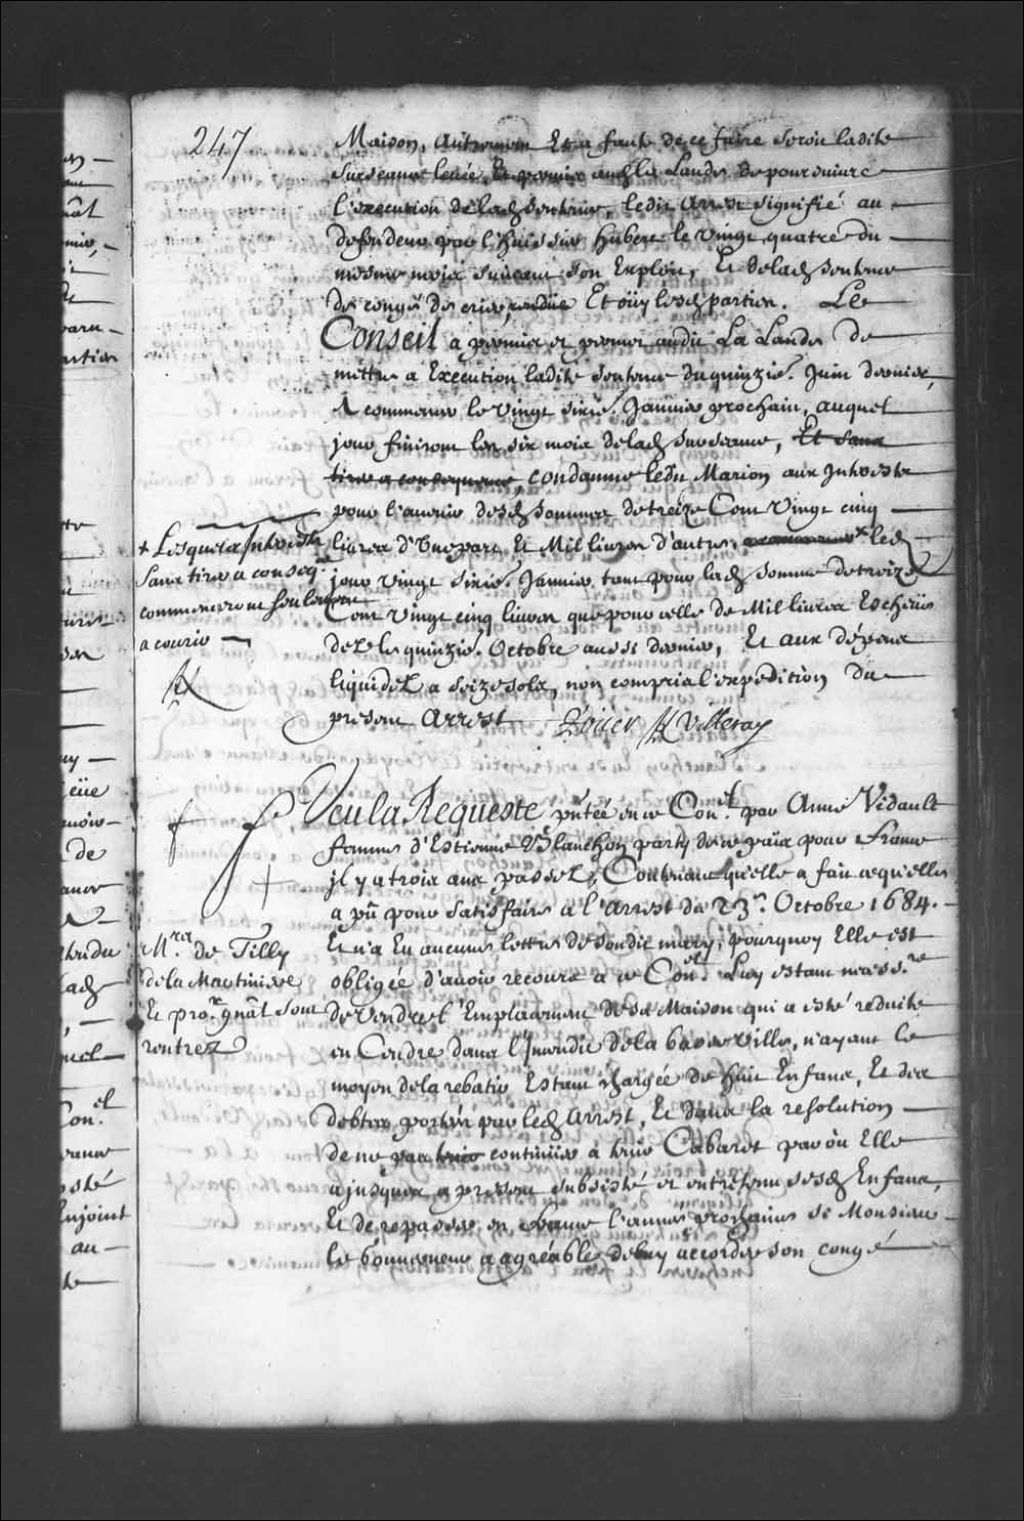 247
Maison, Autrement Et a faute de ce faire seroit ladite
surseance levée, Et permis audt. La Lande de poursuivre
l'execution de lad. Sentence, ledit Arrest signifié au
deffendeur par l'huissier Hubert le vingt quatre du
mesme mois suivant son Exploit, Et de lad. Sentence
de congé des cries, Et oüy lesd. parties. Le
Conseil a permis et permet audit La Lande de
mettre a Execution ladite Sentence du quinzie. Juin dernier,
A commencer le vingt sixie. Janvier prochain, auquel
jour finiront les six mois de lad. surseance, Et sans
tirer a consequence, condamne ledit Marion aux Interests
pour l'avenir desd. sommes de treize Cent vingt cinq
livres d'Une part Et Mil livres d'autre, a commencer + led.
jour vingt sixie. Janvier, tant pour lad. somme de treize
Cent vingt cinq livres que pour celle de Mil livres Escheüe
dez le quinzie. Octobre aussi dernier, Et aux dépens
liquidez a seize sols, non compris l'expedition du
present Arrest
Rouer Villeray
+ Lesquels Interests
sans tirer a conseqce.
commenceront seulement
a courir
R
Veu la Requeste pntée en ce Conel. par Anne Vidault
femme d'Estienne Blanchon party de ce païs pour France
jl y a trois ans passez, Contenant qu'elle a fait ce qu'elle
a pû pour satisfaire a l'arrest du 23e. Octobre 1684.
Et n'a Eu aucunes lettres de sondit mary, pourquoy Elle est
obligée d'avoir recours a ce Conel. Luy estant necessre.
de vendre l'Emplacement de sa Maison qui a esté reduite
en Cendre dans l'Incendie de la basse ville, n'ayant le
moyen de la rebatir Estant chargée de huit Enfans, Et des
debtes portées par led. Arrest, Et dans la resolution
de ne pas continüer a tenir Cabaret par où Elle
a jusques a present subsisté et entretenu sesd. Enfans,
Et de repasser en France l'année prochaine si Monsieur
le Gouverneur a agréable de luy accorder son congé
Mrs. de Tilly
de la Martiniere
Et pror. gnâl sont
rentrez